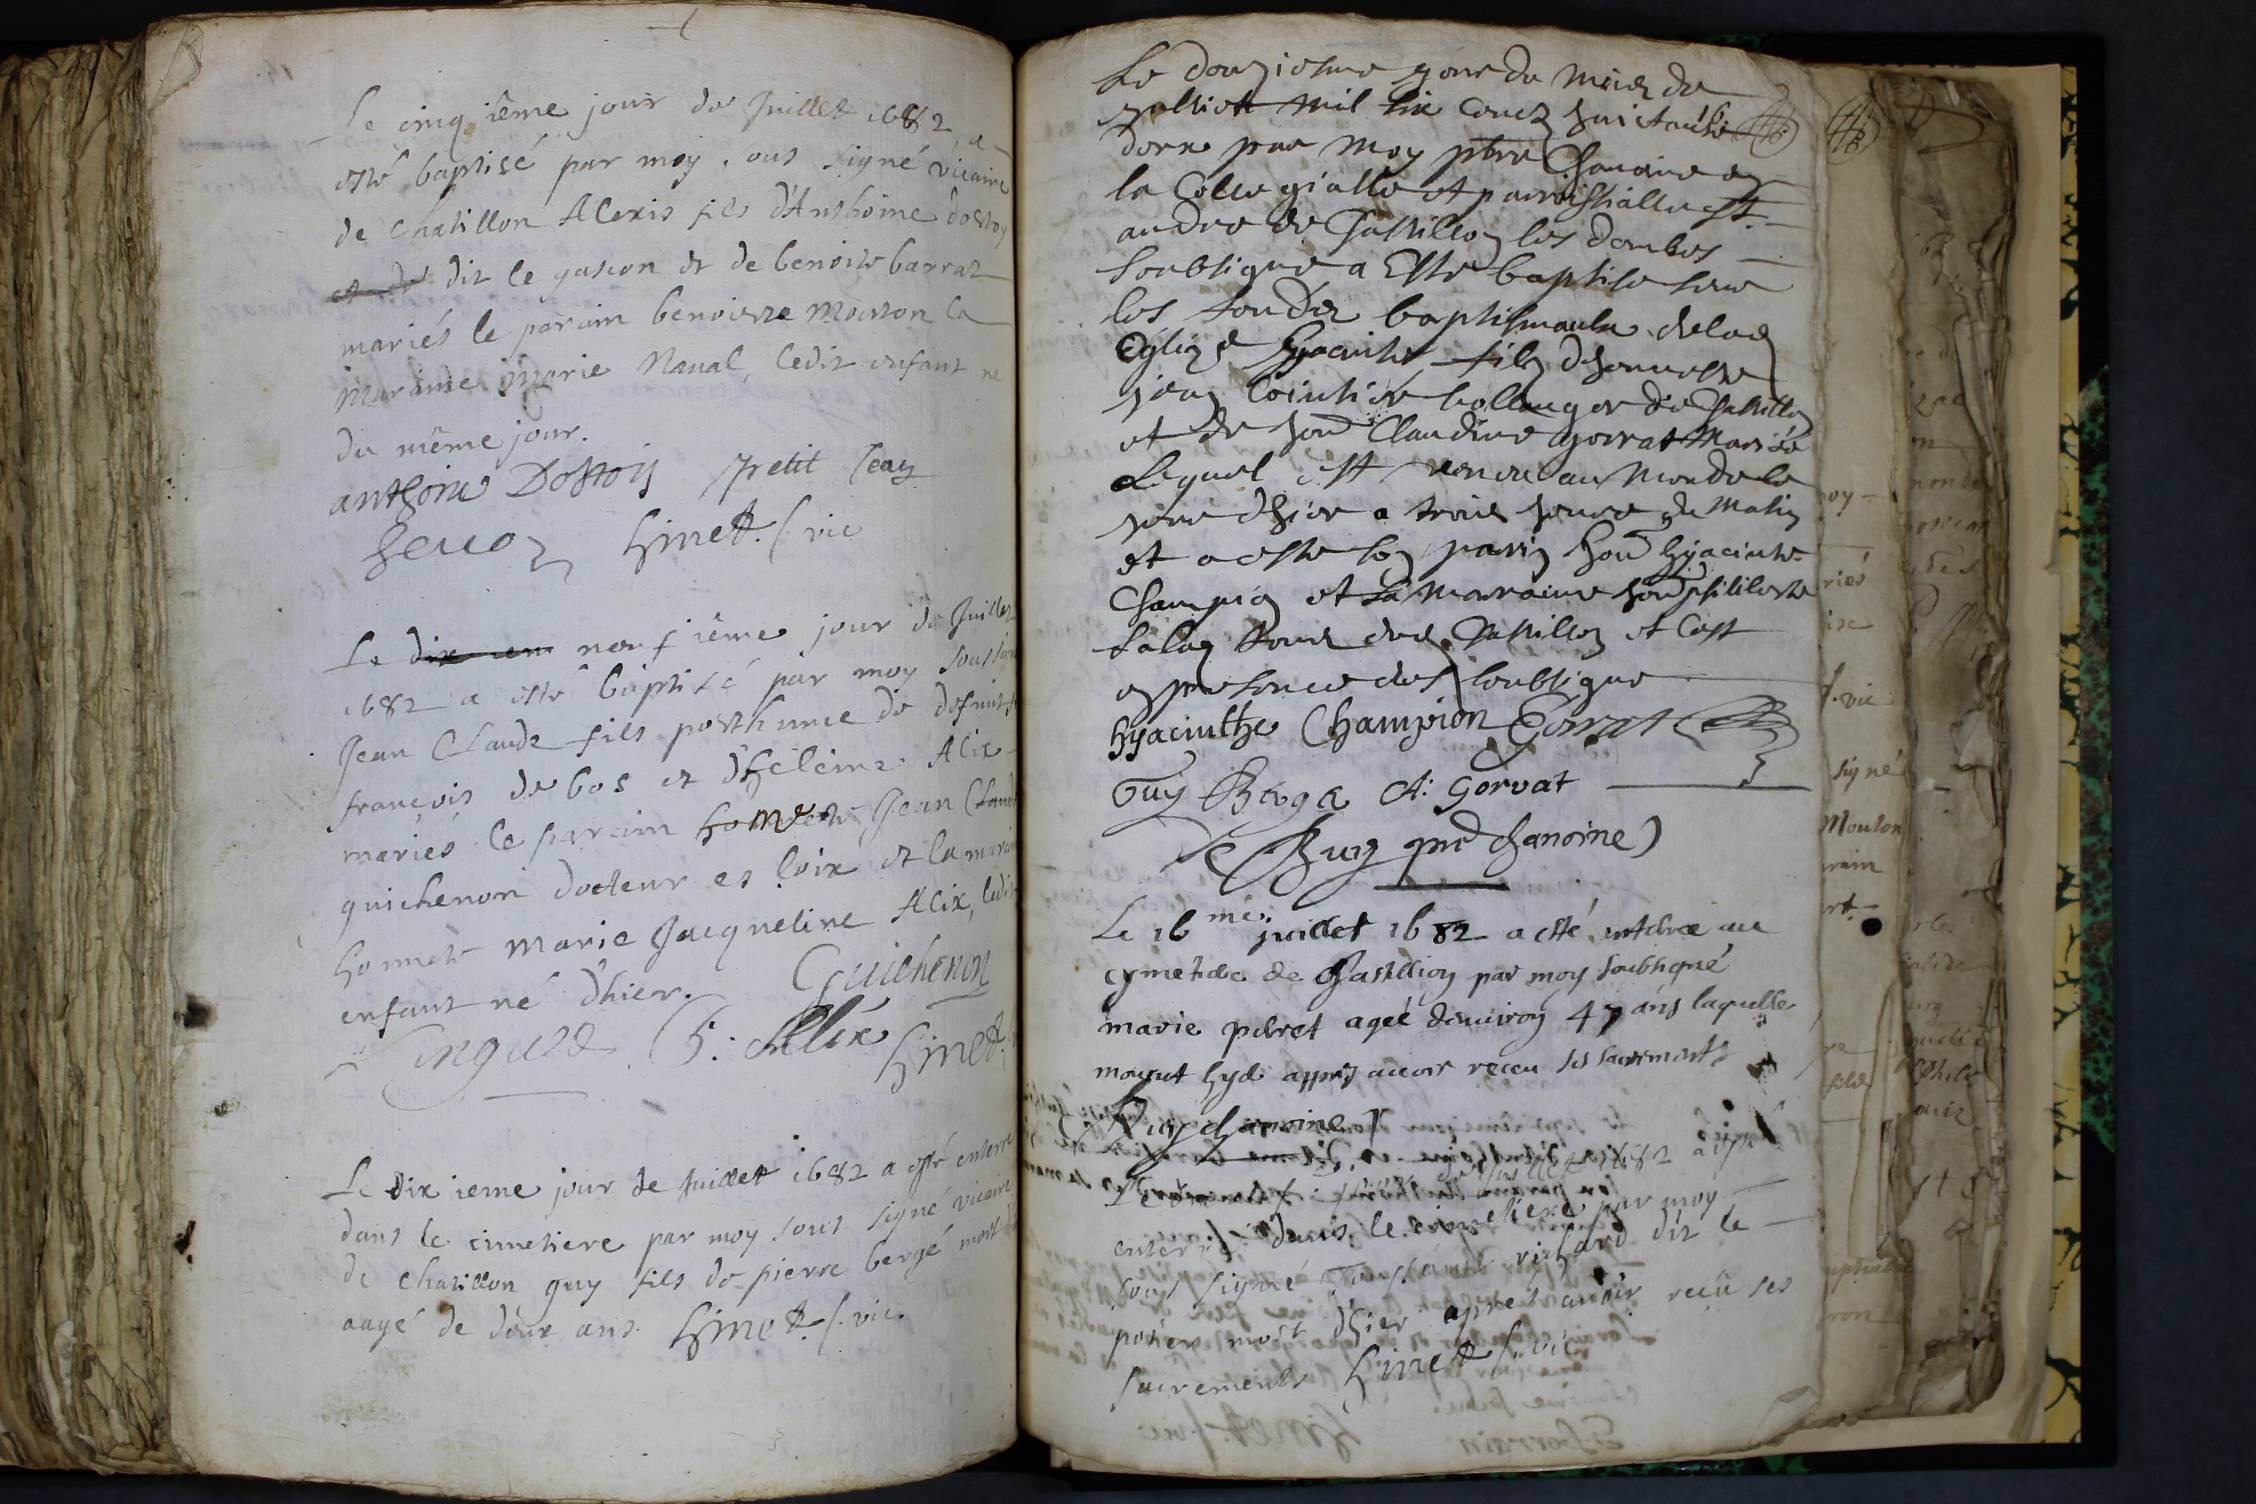 Le cinq ième jour de Juillet 1682, a
esté baptisé par moy sous signé vicaire
de Chatillon Alexis fils d'Anthoine dostoy
et de dit le gascon et de benoiste barrat
mariés le parain benoist Mouton la
maraine Marie Naual, ledit enfant né
du même jour.
anthoine Dostoy petit Jean
hinet. s. vic
Le dix neufième jour de Juillet
1682 a esté baptisé par moy soussigné
Jean Claude fils posthume de defunt
françois de bos et d'heleine Alix
mariés le parain honneste Jean Claude
guichenon docteur es loix et la maraine
honneste Marie Jacqueline Alix, ledit
enfant né d'hier. Guichenon
Alix hinet
Le dix ieme jour de Juillet 1682 a esté enterré
dans le cimetiere par moy sous signé vicaire
de chatillon guy fils de pierre bergé mort
aagé de deux ans. hinet s. vic.
Le douziesme jour du mois de
juilliet mil six centz huictante
doux par moy pbre Chanoine en
la Collegialle et parroissialle St.
andre de Chastillon les dombes
soubsigné a Esté baptisé sur
les fondz baptismaulx de lad
Eglize Hyacinthe filz d'honneste
jean Cointier bollanger de Chastillon
et de hon Claudine gorrat Mariés
Lequel est venu au monde le
jour d'hier a trois heure du Matin
et a esté son parin hon hyacinte
Champion et sa marraine hon philiberte
de Chastillon et Cest
en presence des soubsigne
hyacinthe Champion Gorrat
Guy Berge A: Gorvat
De Bug pre chanoine
Le 16me. juillet 1682 a esté enteree au
cymetiere de Chastillion par moy soubsigné
marie peret ageé denuiron 47 ans laquelle
mourut hyer appres auoir receu ses sacrements
Bug chanoine
Juillet 1682 a esté
enterré dans le cimetiere par moy
sous signé Toussaint richard dit le
potier mort d'hier aprés auoir reçu ses
sacrements hinet s. vic